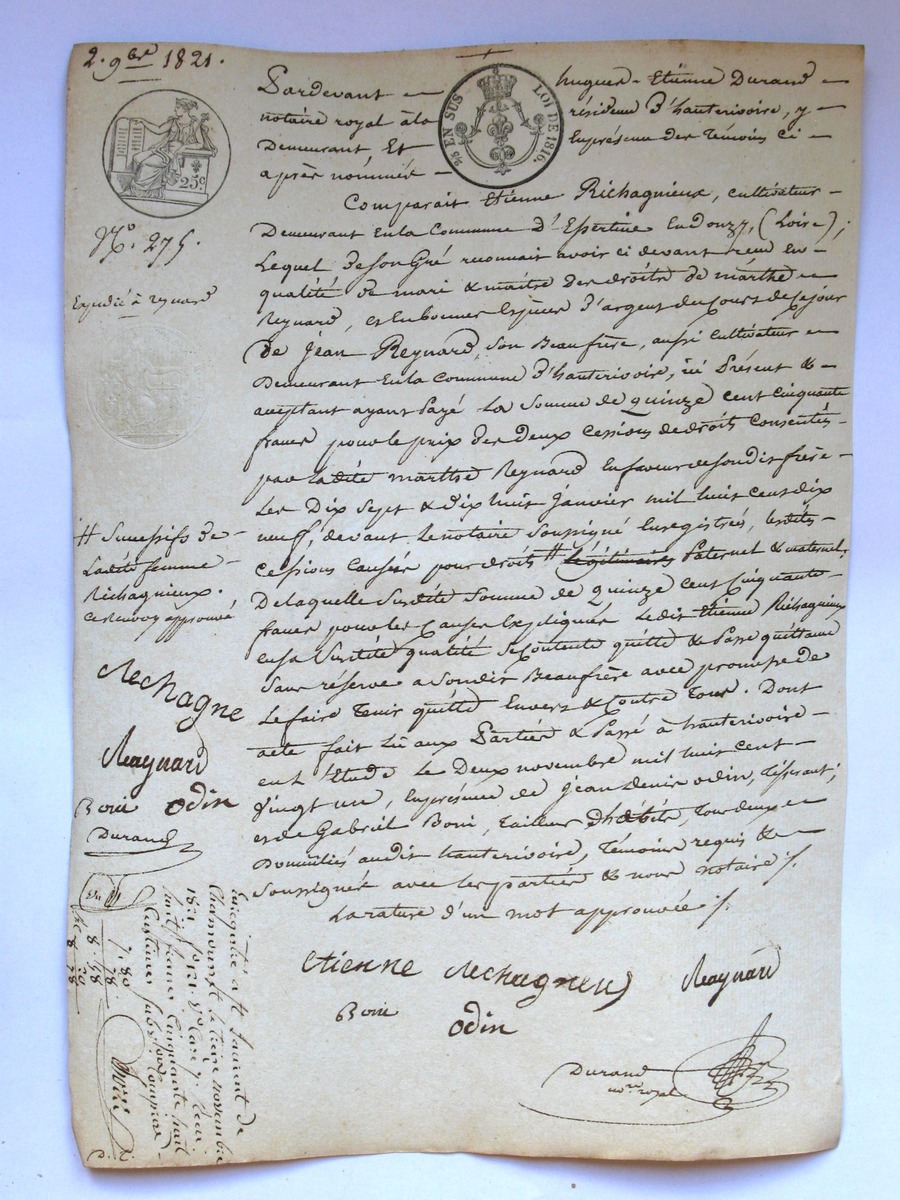 2. 9bre 1821.
25 EN SUS LOI DE 1816.
25c
Pardevant hugues - Etiénne Durand
notaire royal à la résidence d'hauterivoire, y
Demeurant Et En présence des témoins ci
après nommés
Comparait Etiénne Richagnieux, cultivateur
Demeurant En la Commune d'Essertine En Donzy, (Loire);
Lequel de son Gré reconnait avoir ci devant recu en
qualité de mari & maitre des droits de marthe
Reynard, et En bonnes Espèces d'argent du cours de ce jour
De Jean Reynard, son Beaufrère, aussi cultivateur
Demeurant En la Commune d'hauterivoire, ici Présent &
acceptant ayant Payé La Somme de quinze cent cinquante
francs pour le prix des deux cessions de droits Consenties
par la dite marthe Reynard En faveur de son dit frère
Les Dix Sept & dix huit Janvier mil huit cent dix
neuf, devant Le notaire Soussigné Enregistrées, les dites
cessions Causées pour droits # Légitimaires Paternel & maternel.
De laquelle Susdite Somme de quinze Cent Cinquante
francs pour les Causes Expliquées Le dit Etienne Richagnieux
en sa Susdite qualité Se Contente quitte & Passe quittance
Sans réserve a Son dit Beaufrère avec promesse de
Le faire Tenir quitte Envers & Contre Tous. Dont
acte fait Lu aux Parties & Passé à hauterivoire
en L'Etude Le Deux novembre mil huit cent
Vingt un, En présence de Jean Denis odin, Tisserant;
et de Gabriel Boni, Tailleur d'habits, Tous deux
Domiciliés audit hauterivoire, Témoins requis &
Soussignés avec les parties & nous notaire ./.
La rature d'un mot approuvée ./.
Etienne Rechagneu Reaynard
Boni odin
Durand
nore royal
No. 275.
Expédié à reynard
# Successifs de
La dite femme
Richagnieux.
ce renvoy approuvé
Rechagne
Reaynard
Boni Odin
Durand
Enregistré à St Laurent de
Chamousset le treize novembre
1821 fo 121. Vo Case 7. Recu
huit francs cinquante huit
Centimes Subv. Comprise
7. 80
78
8. 58